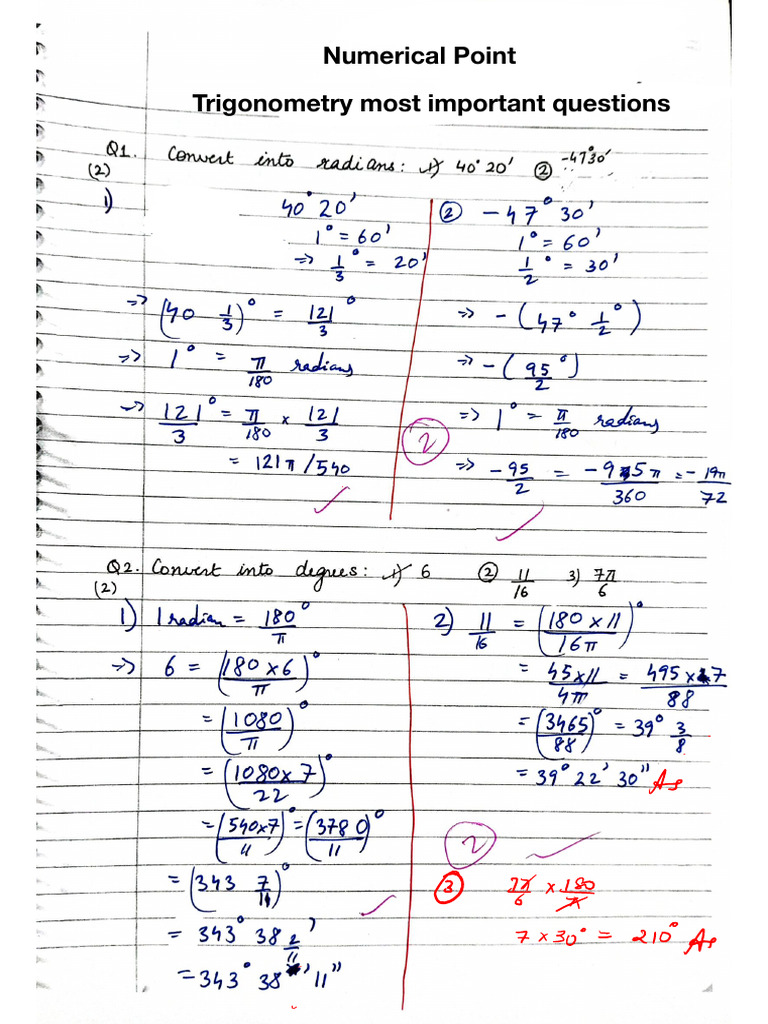 Numerical Point
Trigonometry most important questions
Q1. Convert into radians: 1) 40° 20' ② -47°30'
(2)
1)
40° 20'
1° = 60'
=> 1/3° = 20'
=> (40 1/3)° = 121/3°
=> 1° = π/180 radians
=> 121°/3 = π/180 × 121/3
= 121π/540
② -47° 30'
1° = 60'
1/2° = 30'
=> -(47° 1/2°)
=> -(95/2°)
=> 1° = π/180 radians
2
=> -95/2 = -95π/360 = -19π/72
Q2. Convert into degrees: 1) 6 ② 11/16 3) 7π/6
(2)
1) 1 radian = 180°/π
=> 6 = (180×6/π)°
= (1080/π)°
= (1080×7/22)°
= (540×7/11)° = (3780/11)°
= (343 7/11)°
= 343° 38 2/11'
= 343° 38' 11"
2) 11/16 = (180×11/16π)°
= 45×11/4π = 495×7/88
= (3465/88)° = 39° 3/8
= 39° 22' 30" As
2
③ 7π/6 × 180/π
7 × 30° = 210° As